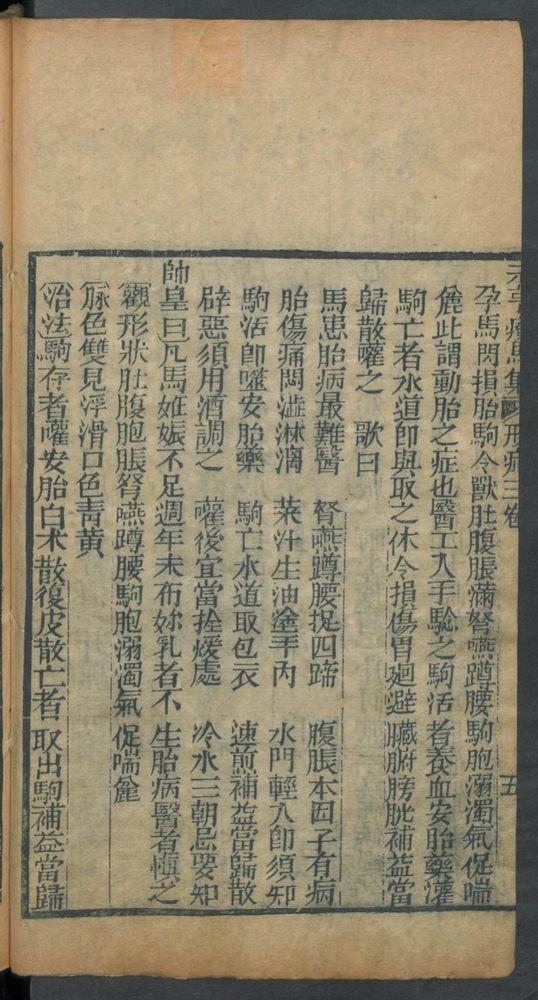 元亨療馬集 形病三卷 五
孕馬悶損胎駒令獸肚腹脹滿弩嚥蹲腰駒胞溺濁氣促喘
麄此謂動胎之症也醫工入手騐之駒活者養血安胎藥灌
駒亡者水道即與取之休令損傷胃廻避臟腑膀胱補益當
歸散嚾之 歌曰
馬患胎病最難醫 弩嚥蹲腰捉四蹄 腹脹本因子有病
胎傷痛悶澁淋漓 菜汁生油塗手內 水門輕入即須知
駒活即嚾安胎藥 駒亡水道取包衣 速煎補益當歸散
辟惡須用酒調之 嚾後宜當拴煖處 冷水三朝忌要知
師皇曰凡馬妊娠不足週年未布妳乳者不生胎病醫者慎之
觀形狀肚腹胞脹弩嚥蹲腰駒胞溺濁氣促喘麄
脉色雙見浮滑口色靑黃
治法駒存者嚾安胎白术散復皮散亡者取出駒補益當歸